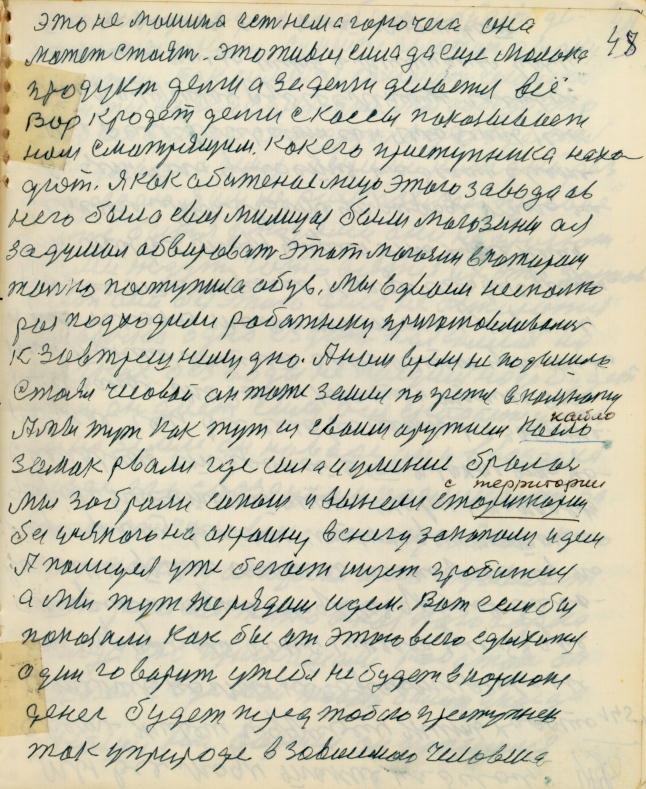 это не машина естнема горючега она
может стоят. это живая сила да еще молоко
продукт денги а за денги делается всё
Вор крадет денги с кассы показывает
нам смотрящим. как его преступника нахо
дят. Я как
него была своя милиция были магазины а я
задумал обвароват этот магазин в котором
толко поступила обув. Мы вдвоем несколко
раз подходили работники приготовлевалися
к завтрешнему дню. А нам время не подошло
стоял человой он тоже зашел погретя в комнату
А мы тут как тут из своим оружием каело
кайло
замак рвали где сила и умение бралос
с территории
мы забрали сапоги и вынели старитории
на окраину в снегу закопали идем
А полиция уже бегает ищет грабижею
а мы тут же рядом идем. Вот если бы
показали как бы от этого всего
один говорит у тебя не будет в кармане
денег будет перед тобою преступнек
так у природе в зависимост человека
48